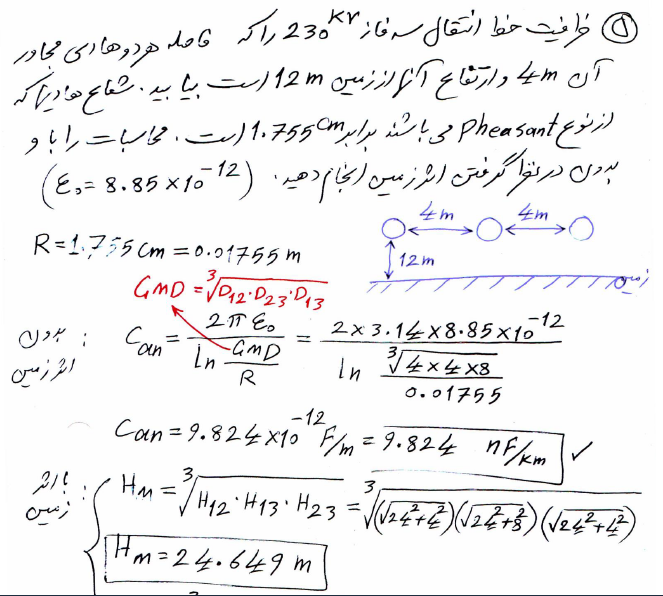 ۵) ظرفیت خط انتقال سه فاز 230 kV را که فاصله هر دو هادی مجاور
آن 4m و ارتفاع آنها از زمین 12m است بیابید. شعاع هادیها که
از نوع Pheasant می باشند برابر 1.755cm است. محاسبات را با و
بدون در نظر گرفتن اثر زمین انجام دهید. (ε₀ = 8.85×10⁻¹²)
4m 4m
R = 1.755 cm = 0.01755 m
12m
زمین
GMD = ∛(D₁₂·D₂₃·D₁₃)
بدون اثر زمین : Can = 2πε₀ / ln(GMD/R) = 2×3.14×8.85×10⁻¹² / ln(∛(4×4×8) / 0.01755)
Can = 9.824×10⁻¹² F/m = 9.824 nF/km ✓
با اثر زمین : { Hm = ∛(H₁₂·H₁₃·H₂₃) = ∛((√(24²+4²))(√(24²+8²))(√(24²+4²)))
Hm = 24.649 m